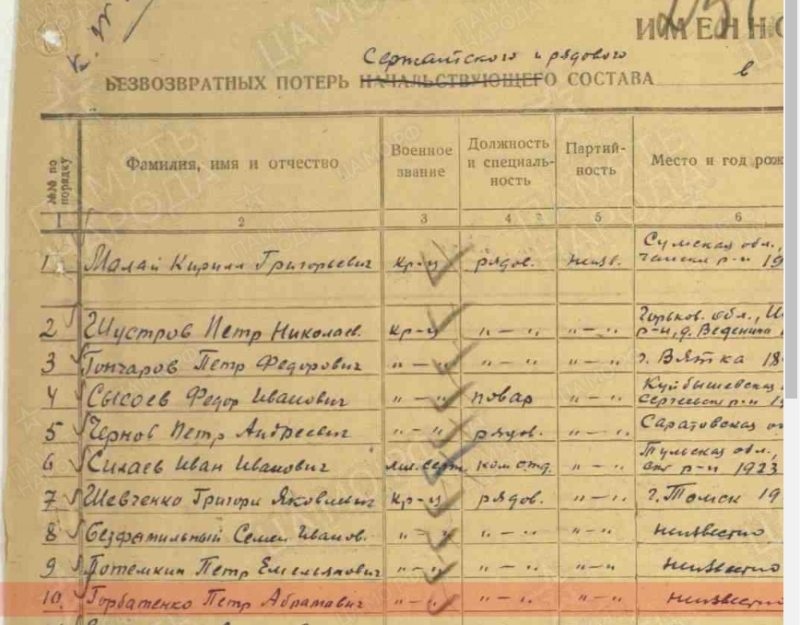 ИМЕННО
Сержантского и рядового
БЕЗВОЗВРАТНЫХ ПОТЕРЬ НАЧАЛЬСТВУЮЩЕГО СОСТАВА в
№№ по порядку Фамилия, имя и отчество Военное звание Должность и специаль-ность Партий-ность Место и год рож
1 2 3 4 5 6
1 Малай Кирилл Григорьевич кр-ц рядов. неизв. Сумская обл., р-н 19
2 Шустров Петр Николаев. кр-ц "—" "—" Горьков. обл., р-н, д. Веденина
3 Гончаров Петр Федорович "—" "—" "—" г. Вятка 18
4 Сысоев Федор Иванович "—" повар "—" Куйбышевская р-н 19
5 Чернов Петр Андреевич "—" рядов. "—" Саратовская о
6 Силаев Иван Иванович мл. серж. ком. отд. "—" Тульская обл., р-н 1923
7 Шевченко Григори Яковлевич кр-ц рядов. "—" г. Томск 19
8 Безфамильный Семен Иванов. "—" "—" "—" неизвестно
9 Потемкин Петр Емельянович "—" "—" "—" неизвестно
10. Горбатенко Петр Абрамович "—" "—" "—" неизвестно